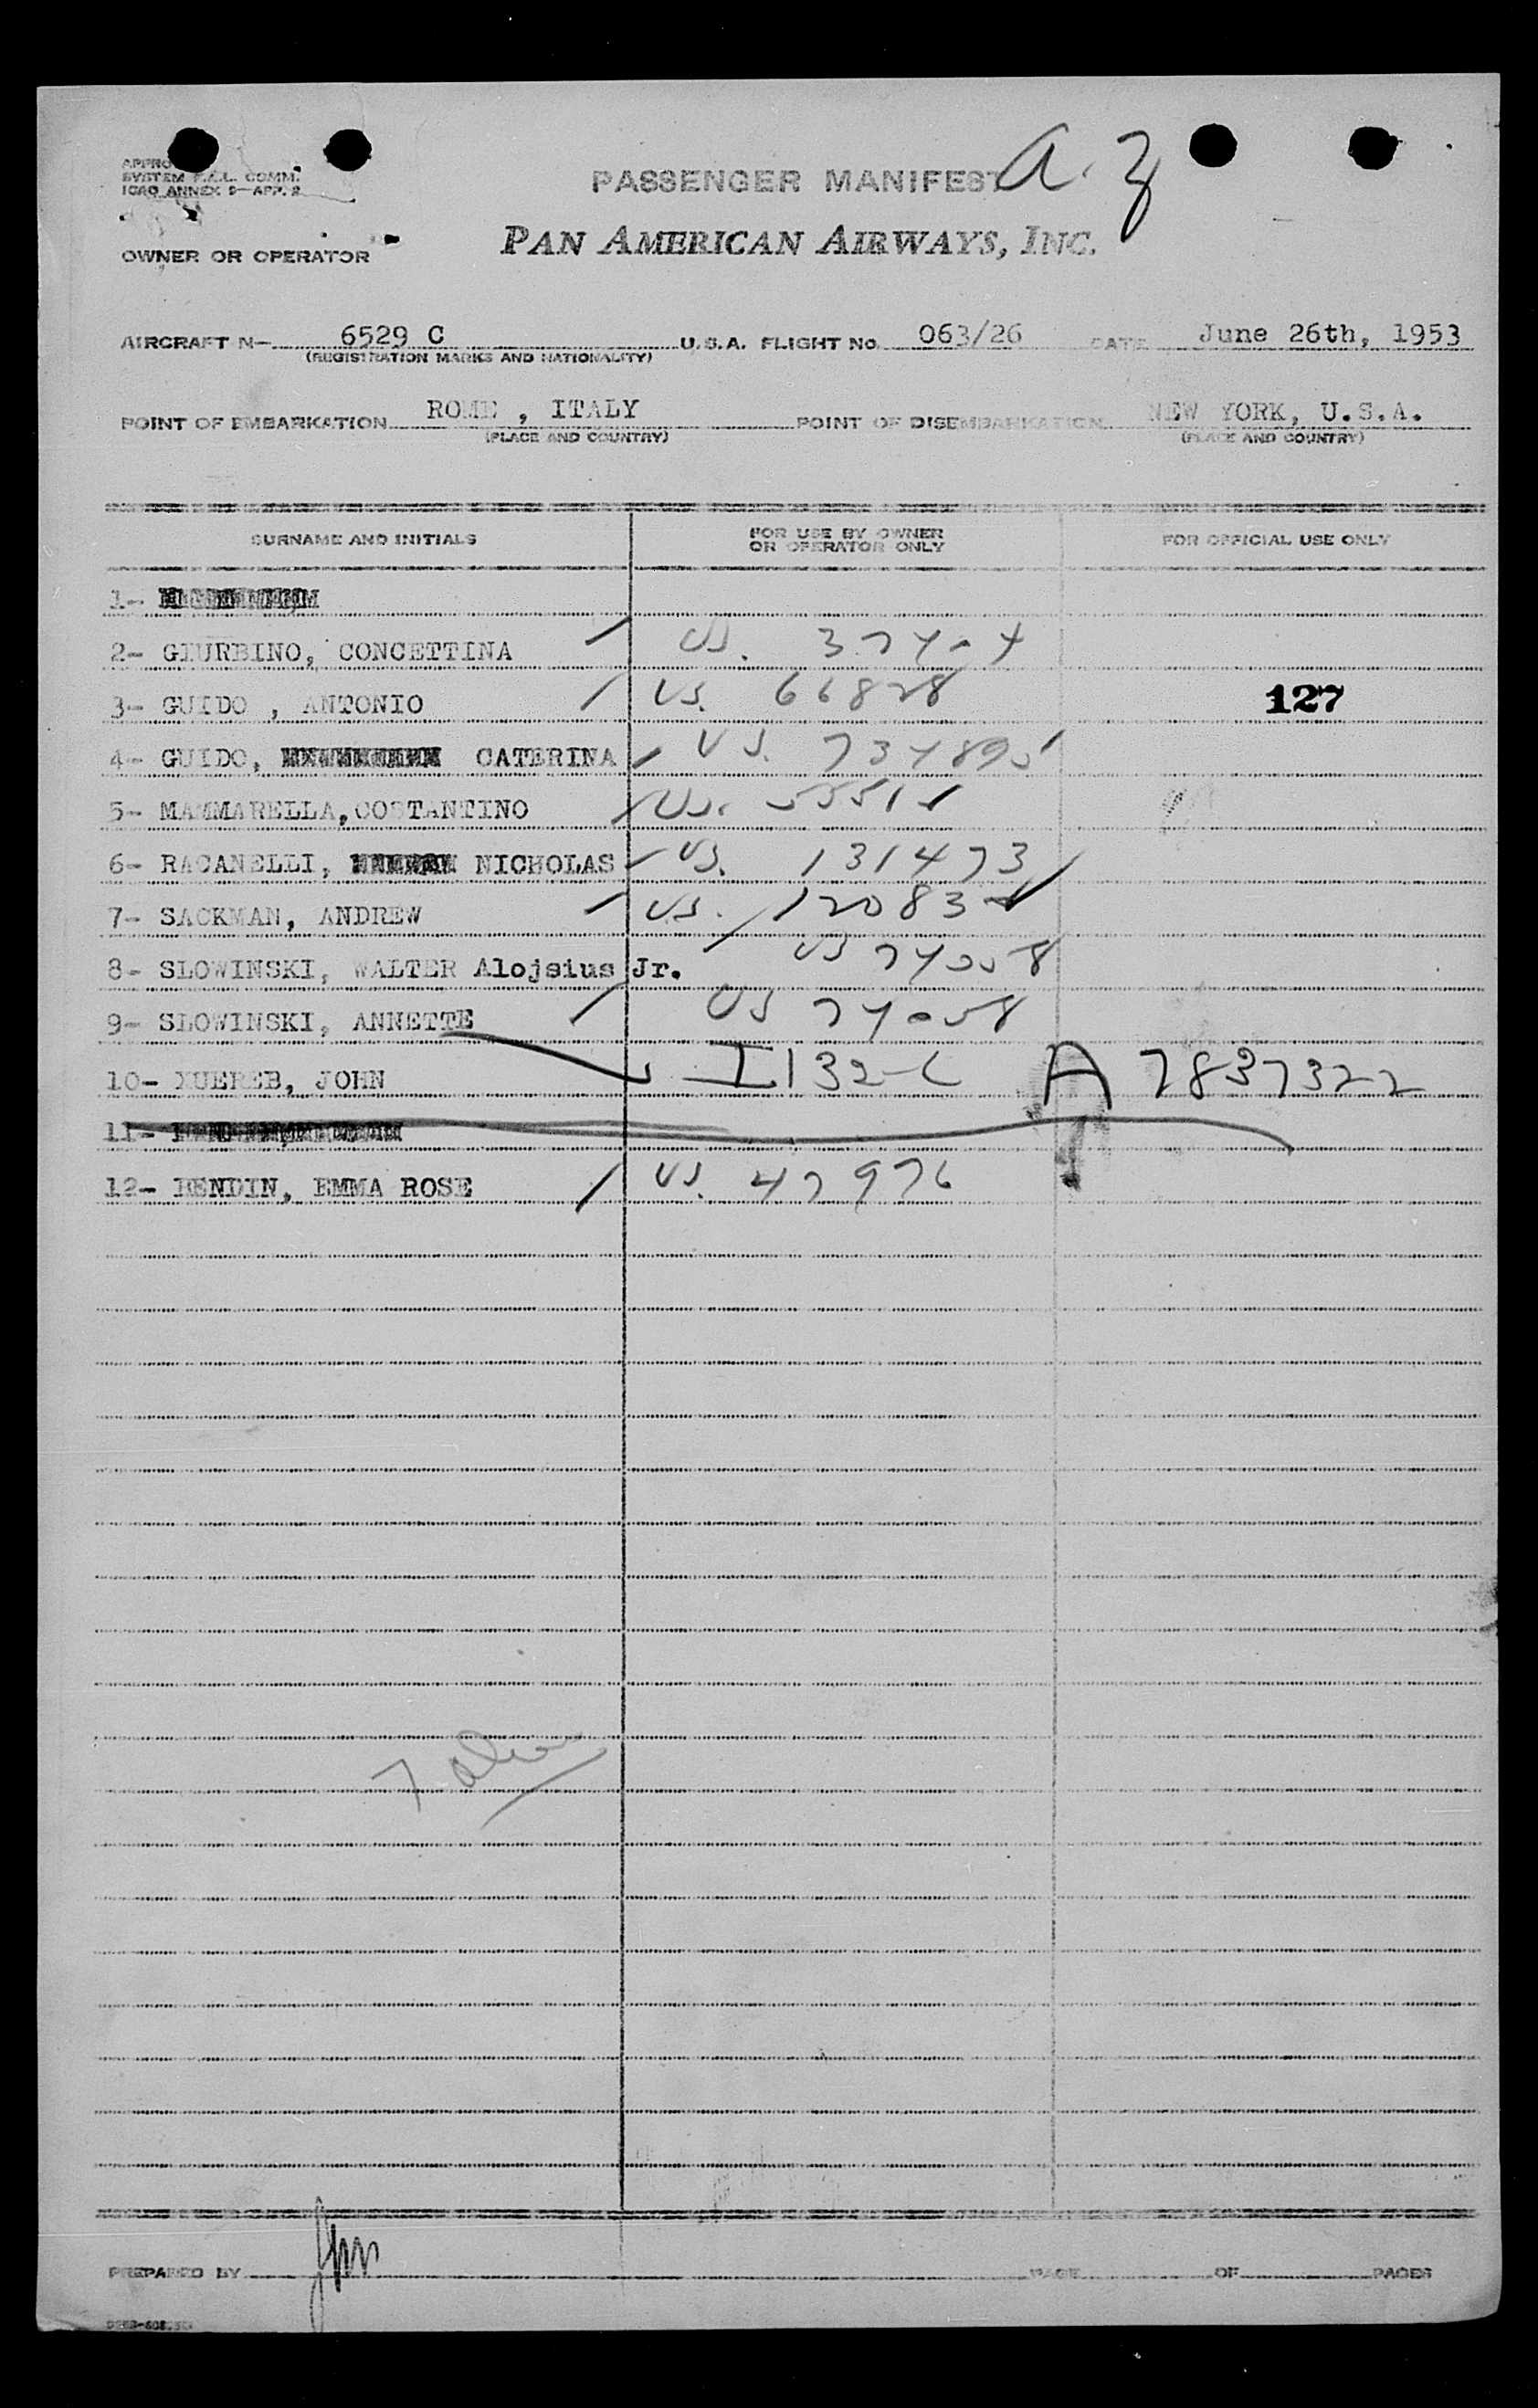 SYSTEM F.A.L. COMM.
ICAO ANNEX 9—APP. 2
PASSENGER MANIFEST
a. z
OWNER OR OPERATOR
PAN AMERICAN AIRWAYS, INC.
AIRCRAFT N— 6529 C U.S.A. FLIGHT No. 063/26 DATE June 26th, 1953
(REGISTRATION MARKS AND NATIONALITY)
POINT OF EMBARKATION ROME , ITALY POINT OF DISEMBARKATION NEW YORK, U.S.A.
(PLACE AND COUNTRY) (PLACE AND COUNTRY)
SURNAME AND INITIALS FOR USE BY OWNER OR OPERATOR ONLY FOR OFFICIAL USE ONLY
1-
2- GIURBINO, CONCETTINA US.
3- GUIDO , ANTONIO US. 66828 127
4- GUIDO, CATERINA US.
5- MAMMARELLA, COSTANTINO US.
6- RACANELLI, NICHOLAS US. 131473
7- SACKMAN, ANDREW US.
8- SLOWINSKI, WALTER Alojsius Jr. US 74058
9- SLOWINSKI, ANNETTE US 74058
10- XUEREB, JOHN I132-C A 7837322
11-
12- RENDIN, EMMA ROSE US. 47976
PREPARED BY PAGE OF PAGES